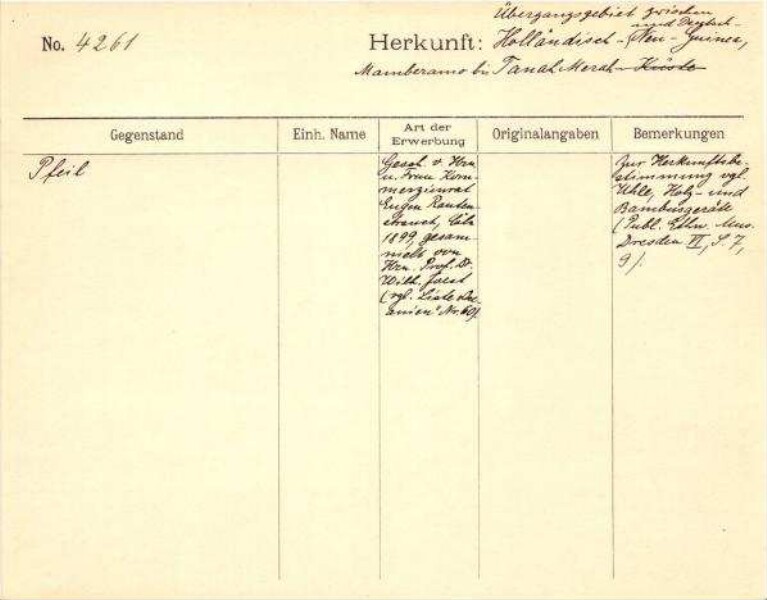 Übergangsgebiet zwischen
und Deutsch-
No. 4261 Herkunft: Holländisch-Neu-Guinea,
Mamberamo bis Tanah Merah-Küste
Gegenstand Einh. Name Art der Erwerbung Originalangaben Bemerkungen
Pfeil
Gesch. v. Hrn.
u. Frau Kom-
merzienrat
Eugen Rauten-
strauch, Cöln
1899, gesam-
melt von
Hrn. Prof. Dr.
Wilh. Joest
(vgl. Liste „Oce-
anien" Nr. 60).
Zur Herkunftsbe-
stimmung vgl.
Uhle, Holz- und
Bambusgeräte
(Publ. Ethn. Mus.
Dresden VI, S. 7,
9).